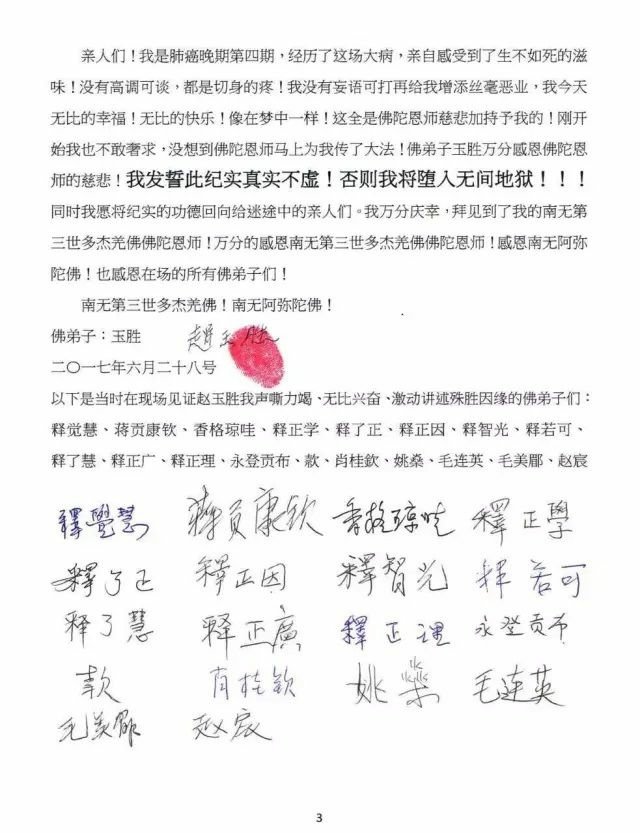 亲人们！我是肺癌晚期第四期，经历了这场大病，亲自感受到了生不如死的滋
味！没有高调可谈，都是切身的疼！我没有妄语可打再给我增添丝毫恶业，我今天
无比的幸福！无比的快乐！像在梦中一样！这全是佛陀恩师慈悲加持予我的！刚开
始我也不敢奢求，没想到佛陀恩师马上为我传了大法！佛弟子玉胜万分感恩佛陀恩
师的慈悲！我发誓此纪实真实不虚！否则我将堕入无间地狱！！！
同时我愿将纪实的功德回向给迷途中的亲人们。我万分庆幸，拜见到了我的南无第
三世多杰羌佛佛陀恩师！万分的感恩南无第三世多杰羌佛佛陀恩师！感恩南无阿弥
陀佛！也感恩在场的所有佛弟子们！
南无第三世多杰羌佛！南无阿弥陀佛！
佛弟子：玉胜 趙玉胜
二〇一七年六月二十八号
以下是当时在现场见证赵玉胜我声嘶力竭、无比兴奋、激动讲述殊胜因缘的佛弟子们：
释觉慧、蒋贡康钦、香格琼哇、释正学、释了正、释正因、释智光、释若可、
释了慧、释正广、释正理、永登贡布、款、肖桂欽、姚燊、毛连英、毛美郿、赵宸
釋覺慧 蒋贡康钦 香格琼哇 釋正學
釋了正 释正因 釋智光 释若可
释了慧 释正廣 釋正理 永登贡布
款 肖桂欽 姚燊 毛连英
毛美郿 赵宸
3